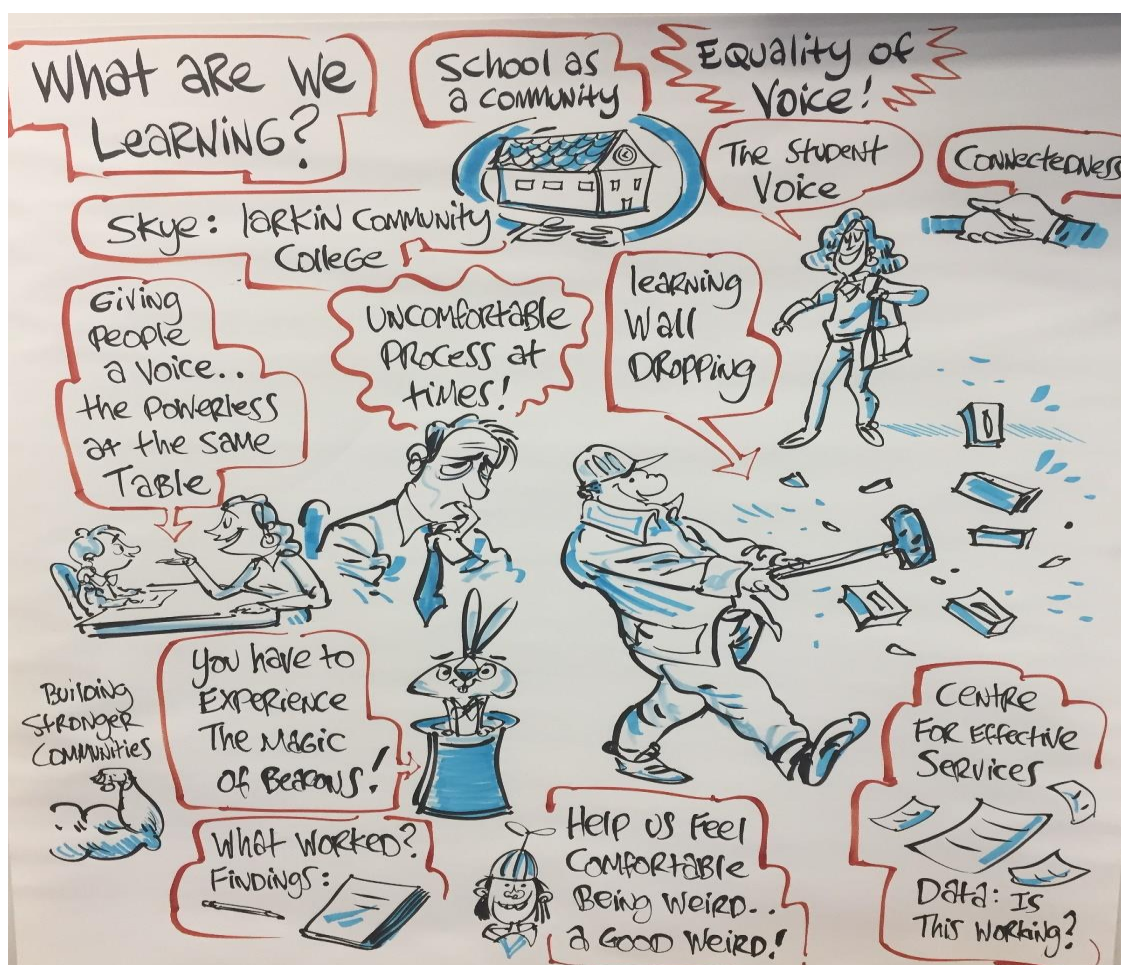 What are we
Learning?
School as
a community
Equality of
Voice!
The Student
Voice
Connectedness
Skye: larkin Community
College
Giving
People
a Voice..
the Powerless
at the Same
Table
Uncomfortable
Process at
times!
learning
Wall
Dropping
Building
Stronger
Communities
You have to
Experience
The Magic
of Beacons!
What Worked?
Findings:
Help us Feel
Comfortable
Being Weird..
a Good Weird!
Centre
For Effective
Services
Data: Is
This Working?